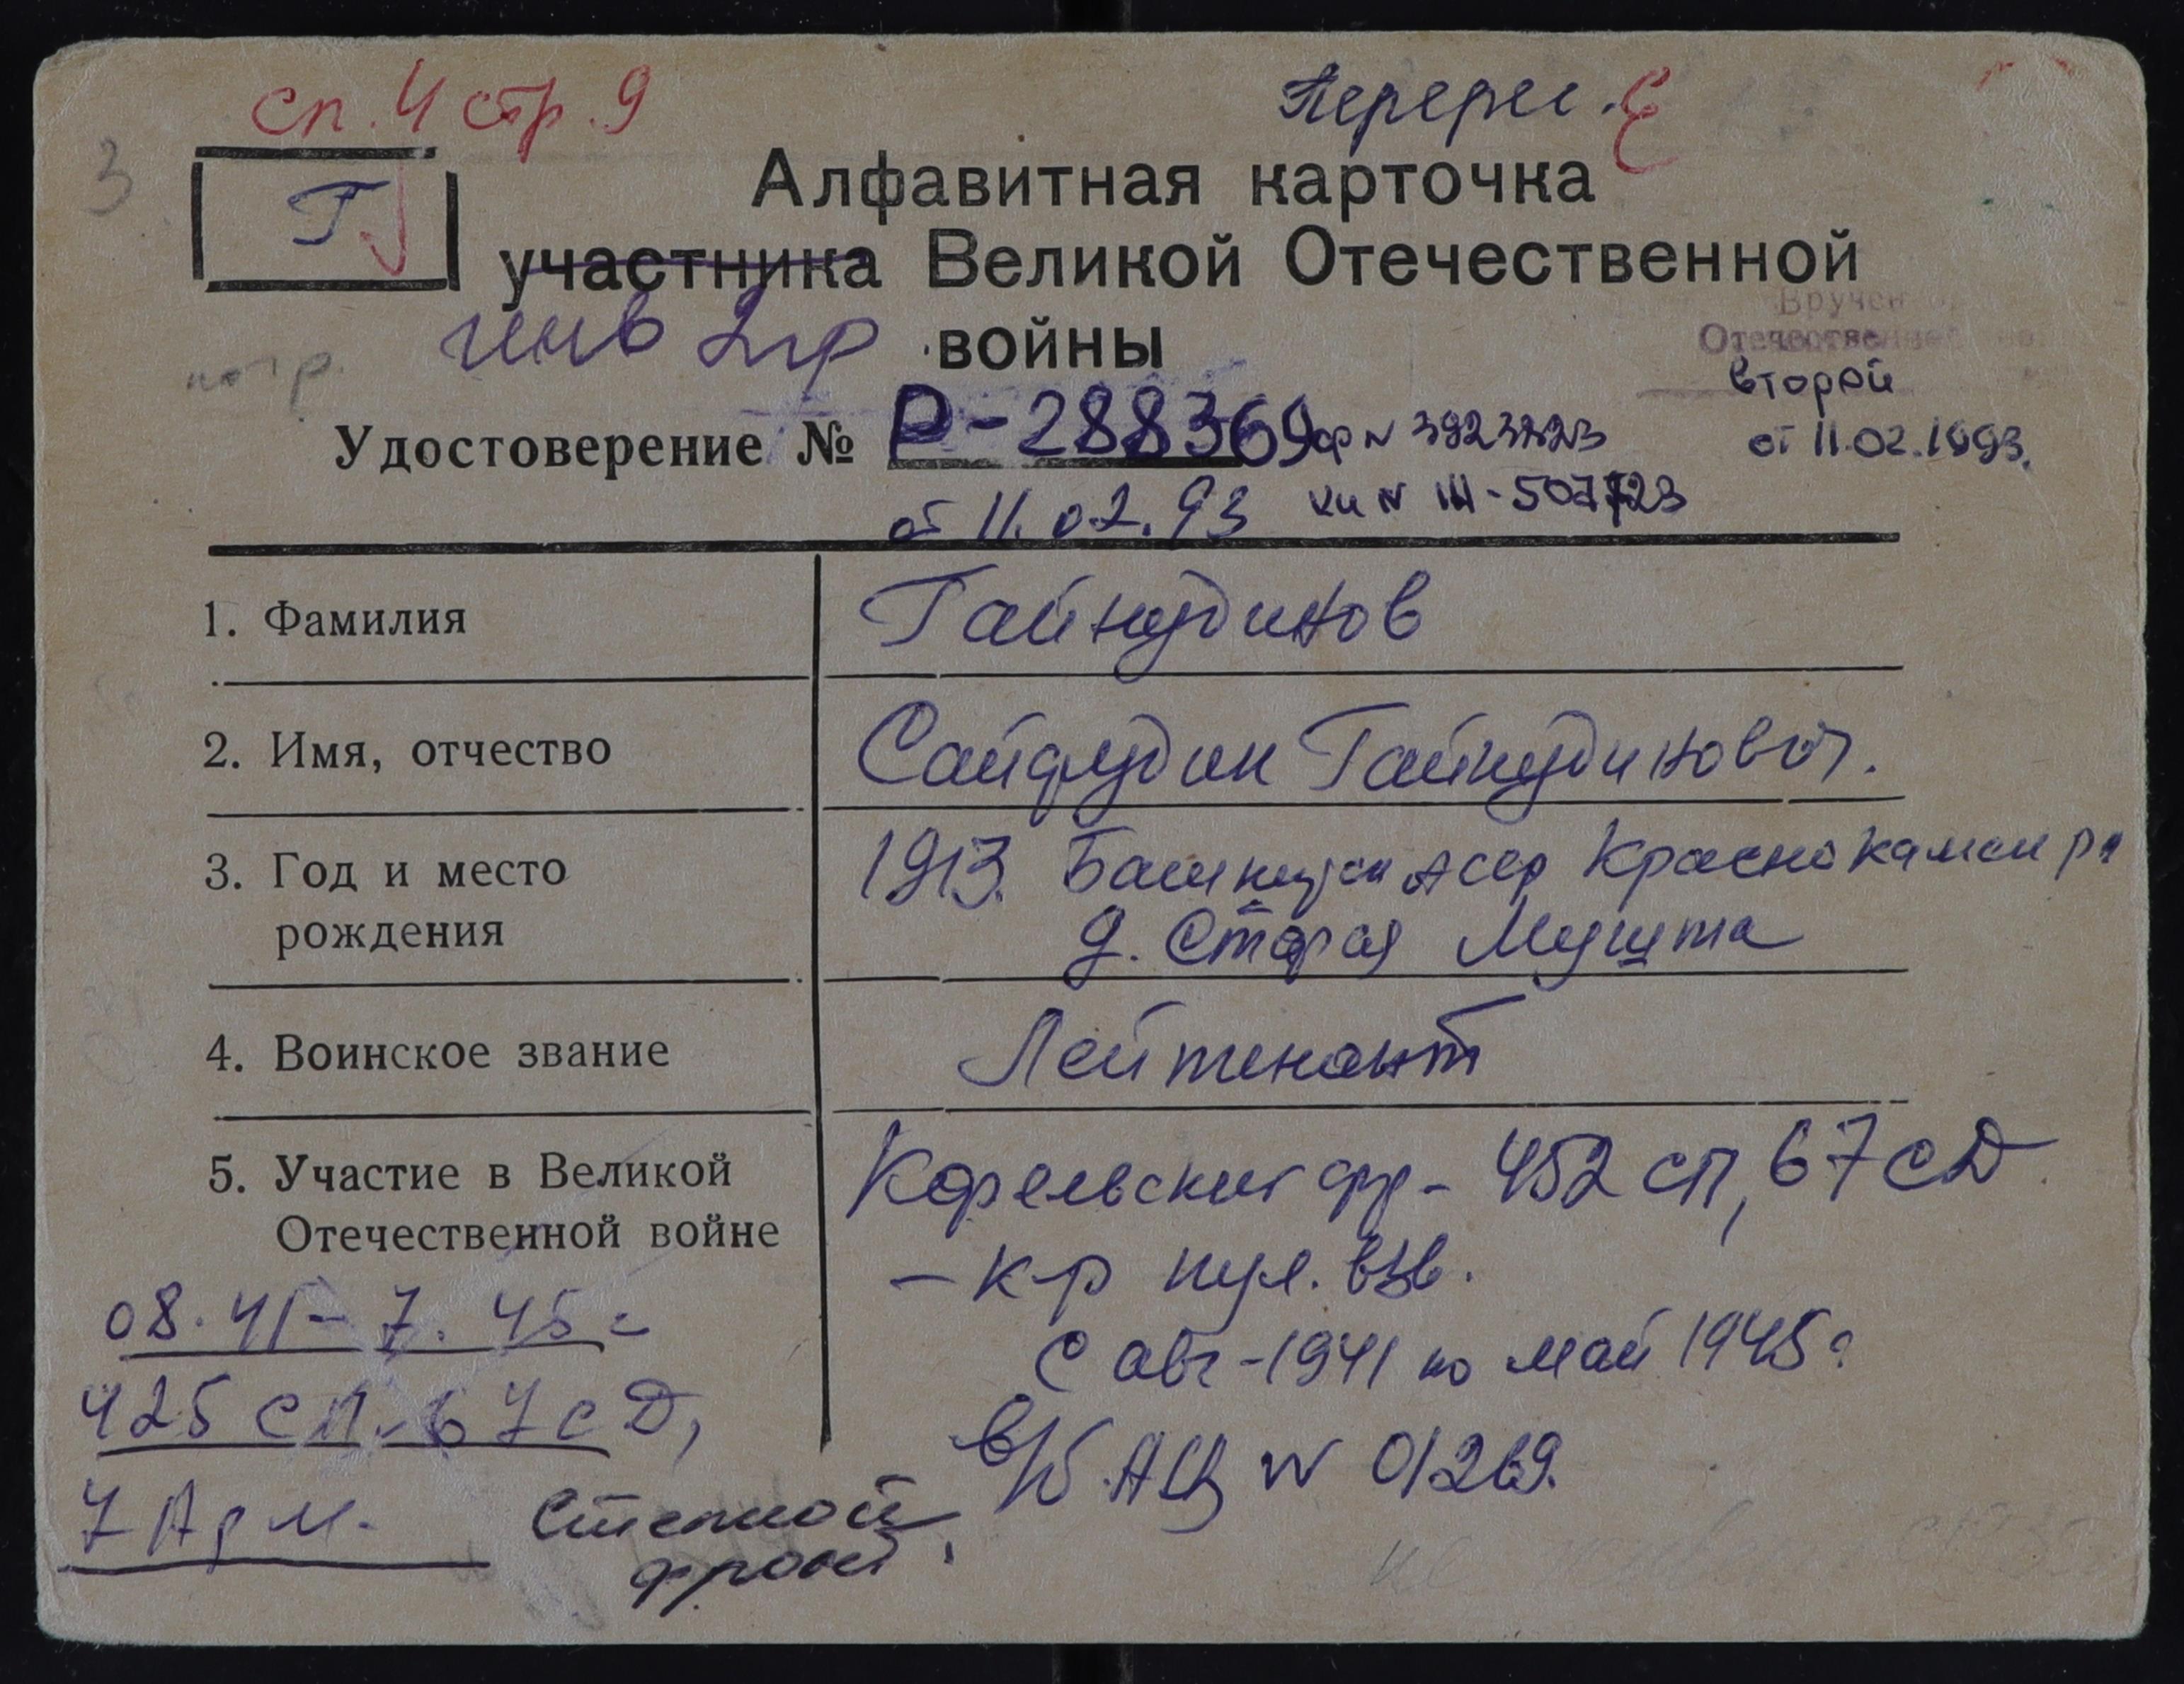 сп. 4 стр. 9
Перерег.
3
Г
Алфавитная карточка
участника Великой Отечественной
инв 2 гр войны
Вручен
Отечестве
второй
от 11.02.1993.
Удостоверение № Р-288369 ор N 3923323
от 11.02.93 кн N III-507723
1. Фамилия Гайнудинов
2. Имя, отчество Сайфудин Гайнудинович.
3. Год и место 1913. Башкирск АССР Краснокамск р-н
рождения д. Старая Мушта
4. Воинское звание Лейтенант
5. Участие в Великой Карельский фр- 452 сп, 67 сД
Отечественной войне - к-р пул. взв.
08.41 - 7.45 г с авг-1941 по май 1945 г
425 сп 67 сД, в/б АЦ N 01269.
7 Арм. Степной
фронт,